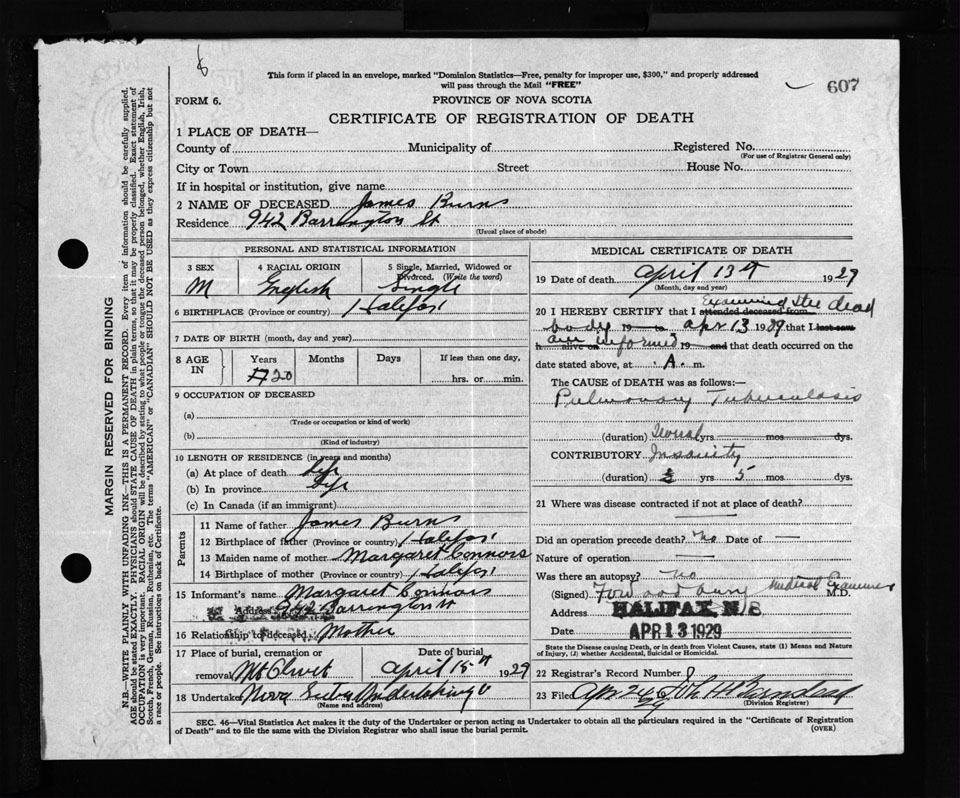 This form if placed in an envelope, marked "Dominion Statistics—Free, penalty for improper use, $300," and properly addressed
will pass through the Mail "FREE"
607
FORM 6.
PROVINCE OF NOVA SCOTIA
CERTIFICATE OF REGISTRATION OF DEATH
MARGIN RESERVED FOR BINDING
N.B.—WRITE PLAINLY WITH UNFADING INK—THIS IS A PERMANENT RECORD. Every item of information should be carefully supplied.
AGE should be stated EXACTLY. PHYSICIANS should STATE CAUSE OF DEATH in plain terms, so that it may be properly classified. Exact statement of
OCCUPATION is very important. RACIAL ORIGIN will be described by stating to what people or tongue the deceased person belonged, whether English, Irish,
Scotch, French, German, Russian, Ruthenian, etc. The terms "AMERICAN" or "CANADIAN" SHOULD NOT BE USED as they express citizenship but not
a race or people. See instructions on back of Certificate.
1 PLACE OF DEATH—
County of Municipality of Registered No.
(For use of Registrar General only)
City or Town Street House No.
If in hospital or institution, give name
2 NAME OF DECEASED James Burns
Residence 942 Barrington St
(Usual place of abode)
PERSONAL AND STATISTICAL INFORMATION
3 SEX 4 RACIAL ORIGIN 5 Single, Married, Widowed or
Divorced. (Write the word)
M English Single
6 BIRTHPLACE (Province or country) Halifax
7 DATE OF BIRTH (month, day and year)
8 AGE IN Years Months Days If less than one day,
20 hrs. or min.
9 OCCUPATION OF DECEASED
(a)
(Trade or occupation or kind of work)
(b)
(Kind of industry)
10 LENGTH OF RESIDENCE (in years and months)
(a) At place of death Life
(b) In province Life
(c) In Canada (if an immigrant)
Parents
11 Name of father James Burns
12 Birthplace of father (Province or country) Halifax
13 Maiden name of mother Margaret Connors
14 Birthplace of mother (Province or country) Halifax
15 Informant's name Margaret Connors
Address 942 Barrington St
16 Relationship to deceased Mother
17 Place of burial, cremation or Date of burial
removal Mt Olivet April 15th 1929
18 Undertaker Nova Scotia Undertaking Co
(Name and address)
MEDICAL CERTIFICATE OF DEATH
19 Date of death April 13th 1929
(Month, day and year)
20 I HEREBY CERTIFY that I attended deceased from Examined the dead
body 19 to Apr 13 1929 that I last saw
h alive on am informed 19 and that death occurred on the
date stated above, at A. m.
The CAUSE of DEATH was as follows:—
Pulmonary Tuberculosis
(duration) Several yrs mos dys.
CONTRIBUTORY Insanity
(duration) yrs 5 mos dys.
21 Where was disease contracted if not at place of death?
Did an operation precede death? no Date of —
Nature of operation
Was there an autopsy? no
(Signed) Medical Examiner M.D.
Address HALIFAX N/S
Date APR 13 1929
State the Disease causing Death, or in death from Violent Causes, state (1) Means and Nature
of Injury, (2) whether Accidental, Suicidal or Homicidal.
22 Registrar's Record Number
23 Filed Apr 24 29
(Division Registrar)
SEC. 46—Vital Statistics Act makes it the duty of the Undertaker or person acting as Undertaker to obtain all the particulars required in the "Certificate of Registration
of Death" and to file the same with the Division Registrar who shall issue the burial permit.
(OVER)